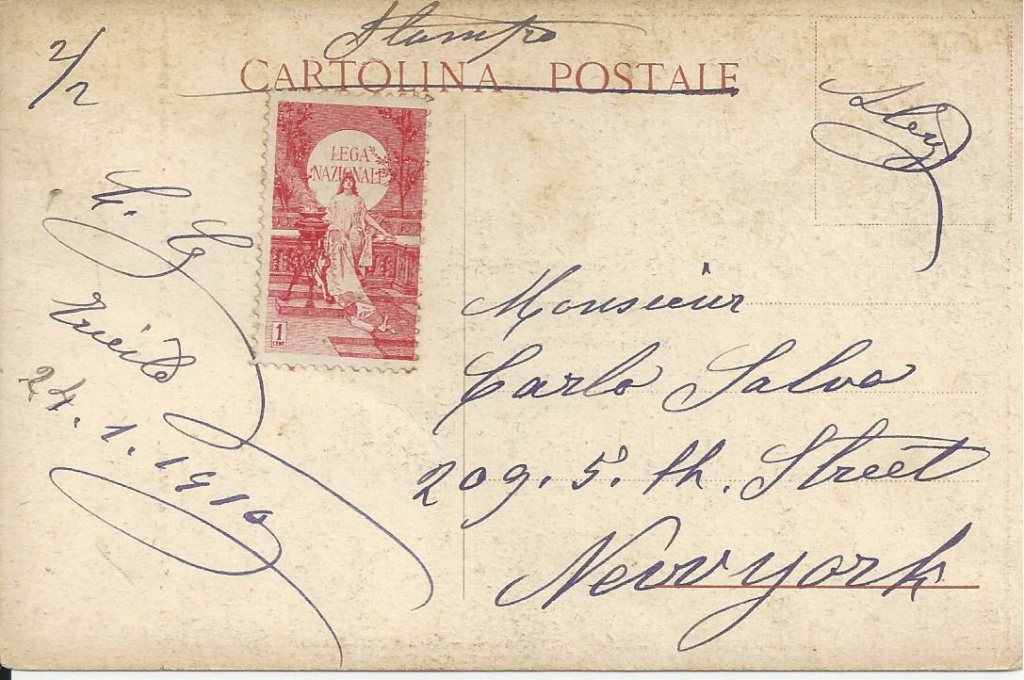 2/2
Stampe
CARTOLINA POSTALE
LEGA
NAZIONALE
1
CENT
Trieste
24.1.1910
Monsieur
Carlo Salvo
209. 5. th. Street
Newyork